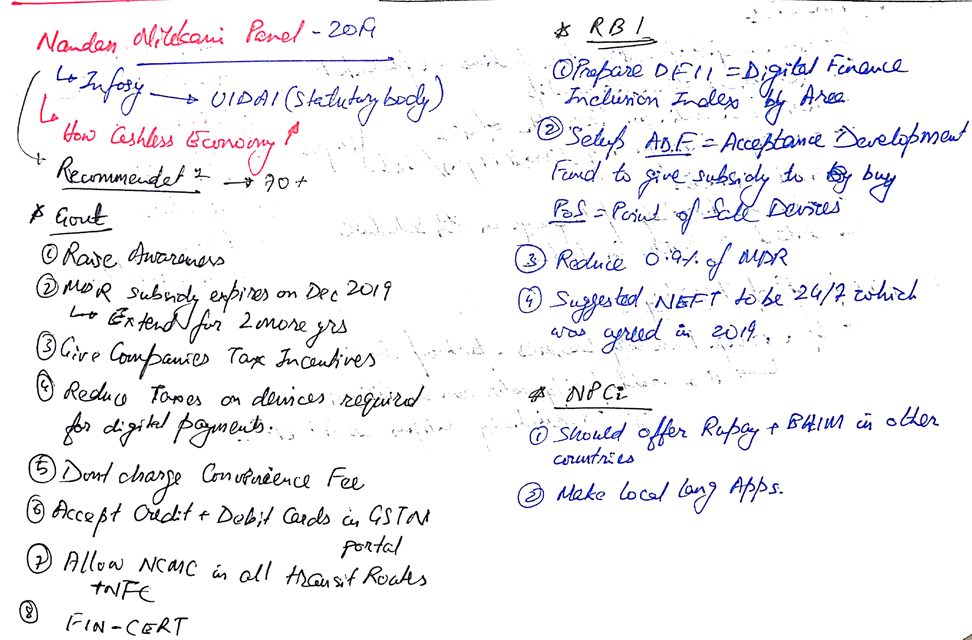 Nandan Nilekani Panel - 2019
↳ Infosys → UIDAI (Statutory body)
↳ How Cashless Economy ↑
Recommendatⁿ → 70+
* Govt
① Raise Awareness
② MDR subsidy expires on Dec 2019
↳ Extend for 2 more yrs
③ Give Companies Tax Incentives
④ Reduce Taxes on devices required
for digital payments.
⑤ Dont charge Convenience Fee
⑥ Accept Credit + Debit Cards in GSTN
portal
⑦ Allow NCMC in all transit Routes
+NFC
⑧ FIN-CERT
* RBI
① Prepare DFII = Digital Finance
Inclusion Index by Area
② Setup ADF = Acceptance Development
Fund to give subsidy to buy
PoS = Point of Sale Devices
③ Reduce 0.9% of MDR
④ Suggested NEFT to be 24/7 which
was agreed in 2019.
* NPCi
① Should offer Rupay + BHIM in other
countries
② Make Local Lang Apps.